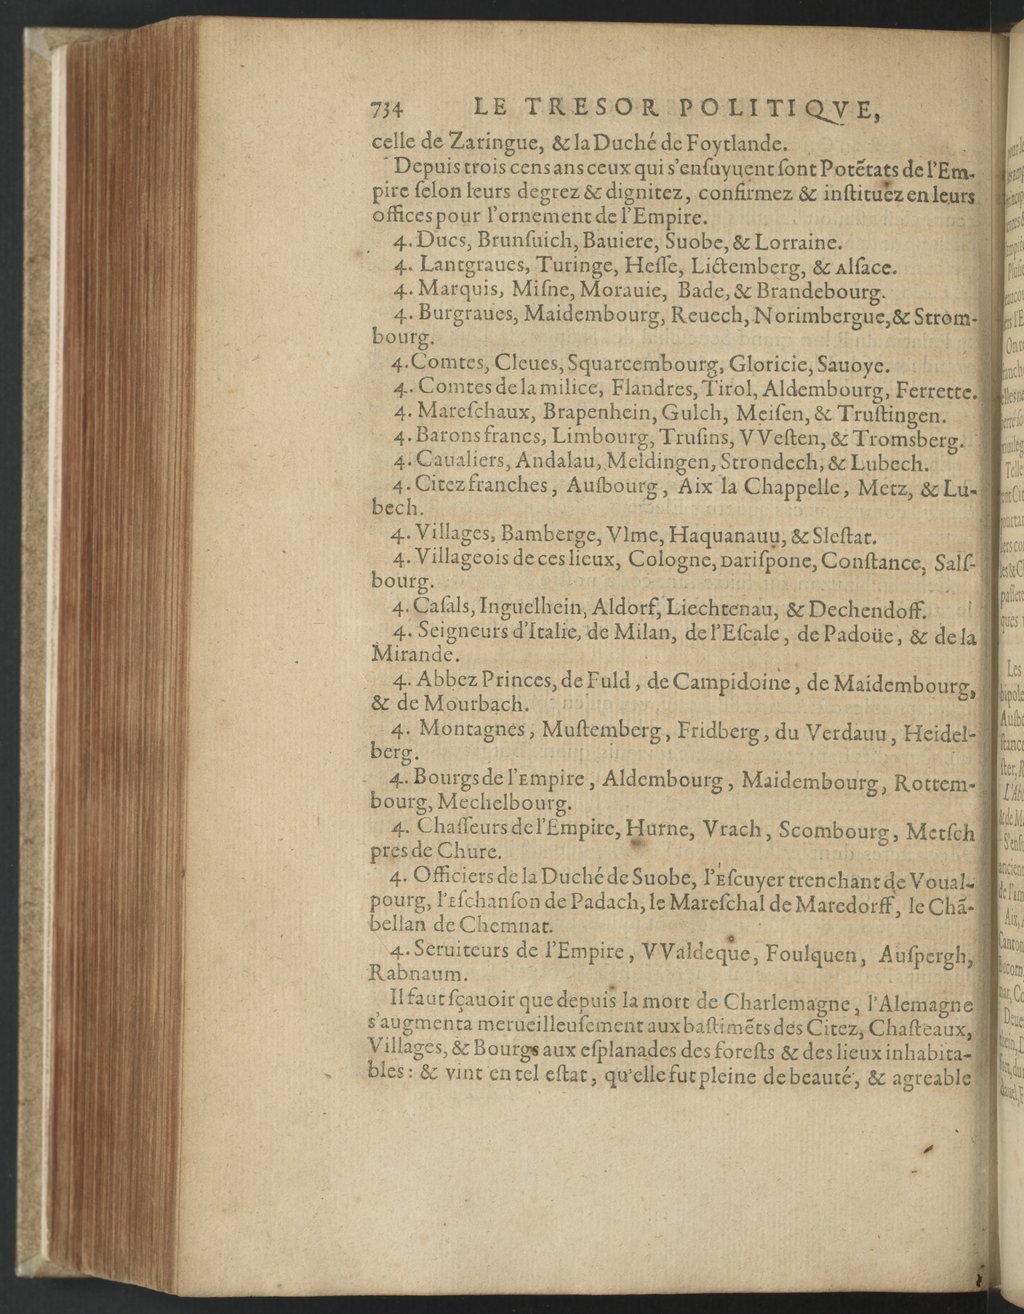 734 LE TRESOR POLITIQVE,
celle de Zaringue, & la Duché de Foytlande.
Depuis trois cens ans ceux qui s'enſuyuent ſont Potẽtats de l'Em-
pire ſelon leurs degrez & dignitez, confirmez & inſtituez en leurs
offices pour l'ornement de l'Empire.
4. Ducs, Brunſuich, Bauiere, Suobe, & Lorraine.
4. Lantgraues, Turinge, Heſſe, Lictemberg, & Alſace.
4. Marquis, Miſne, Morauie, Bade, & Brandebourg.
4. Burgraues, Maidembourg, Reuech, Norimbergue, & Strom-
bourg.
4. Comtes, Cleues, Squarcembourg, Gloricie, Sauoye.
4. Comtes de la milice, Flandres, Tirol, Aldembourg, Ferrette.
4. Mareſchaux, Brapenhein, Gulch, Meiſen, & Truſtingen.
4. Barons francs, Limbourg, Truſins, VVeſten, & Tromsberg.
4. Caualiers, Andalau, Meldingen, Strondech, & Lubech.
4. Citez franches, Auſbourg, Aix la Chappelle, Metz, & Lu-
bech.
4. Villages, Bamberge, Vlme, Haquanauu, & Sleſtat.
4. Villageois de ces lieux, Cologne, Dariſpone, Conſtance, Salſ-
bourg.
4. Caſals, Inguelhein, Aldorf, Liechtenau, & Dechendoff.
4. Seigneurs d'Italie, de Milan, de l'Eſcale, de Padoüe, & de la
Mirande.
4. Abbez Princes, de Fuld, de Campidoine, de Maidembourg,
& de Mourbach.
4. Montagnes, Muſtemberg, Fridberg, du Verdauu, Heidel-
berg.
4. Bourgs de l'Empire, Aldembourg, Maidembourg, Rottem-
bourg, Mechelbourg.
4. Chaſſeurs de l'Empire, Hurne, Vrach, Scombourg, Metſch
pres de Chure.
4. Officiers de la Duché de Suobe, l'Eſcuyer trenchant de Voual-
pourg, l'Eſchanſon de Padach, le Mareſchal de Maredorff, le Chã-
bellan de Chemnat.
4. Seruiteurs de l'Empire, VValdeque, Foulquen, Auſpergh,
Rabnaum.
Il faut ſçauoir que depuis la mort de Charlemagne, l'Alemagne
s'augmenta merueilleuſement aux baſtimẽts des Citez, Chaſteaux,
Villages, & Bourgs aux eſplanades des foreſts & des lieux inhabita-
bles: & vint en tel eſtat, qu'elle fut pleine de beauté, & agreable